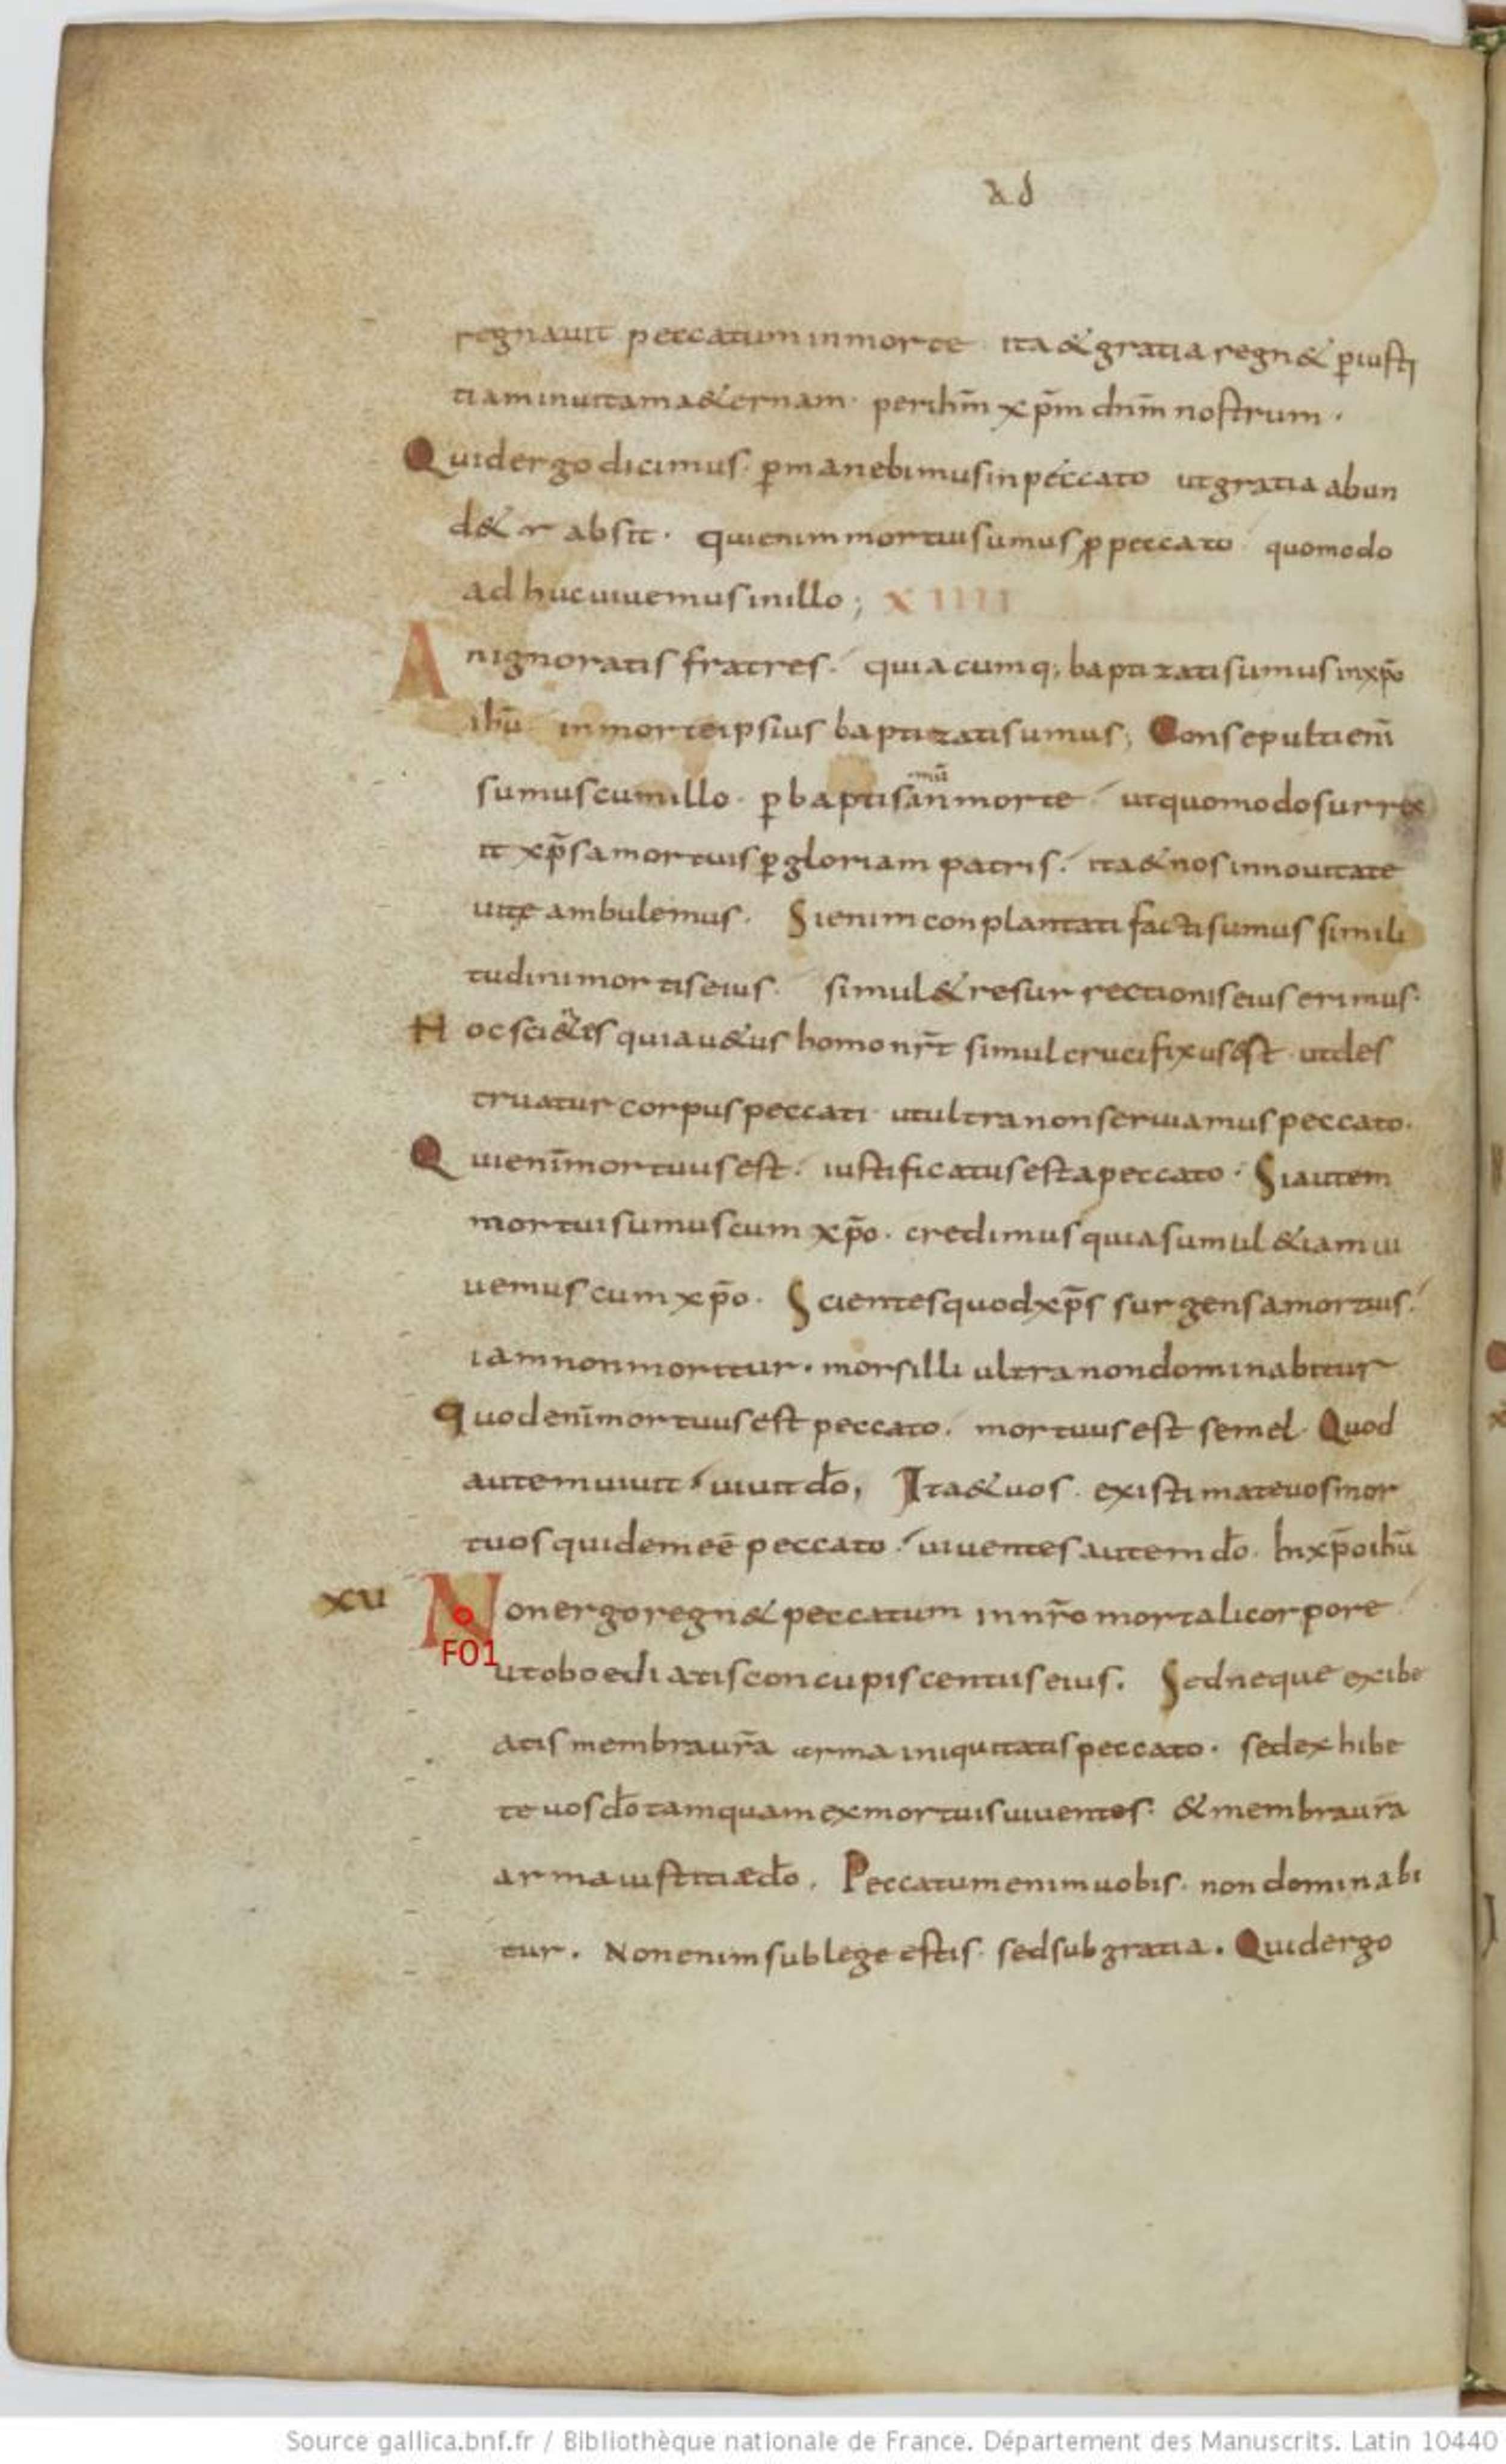 ad
regnauit peccatum in morte ita & gratia regn& ꝑ iusti
tiam in uitam a&ernam · per ihm̄ xp̄m dnm̄ nostrum ·
Quid ergo dicimus · ꝑmanebimus in peccato ut gratia abun
d&r absit · qui enim mortui sumus ꝓ peccato quomodo
adhuc uiuemus in illo ; XIIII
An ignoratis fratres · quia cumq; baptizati sumus in xp̄o
ihū in morte ipsius baptizati sumus ; Consepulti eni̅
sumus cum illo · ꝑ baptis mū an morte ut quomodo surrex
it xp̄s a mortuis ꝑ gloriam patris · ita & nos in nouitate
uitę ambulemus · Si enim conplantati facti sumus simili
tudini mortis eius · simul & resurrectionis eius erimus ·
Hoc sci&es quia u&us homo nr̄ simul crucifixus est ut des
truatur corpus peccati ut ultra non seruiamus peccato ·
Qui eni̅ mortuus est · iustificatus est a peccato · Si autem
mortui sumus cum xp̄o · credimus quia sumul &iam ui
uemus cum xp̄o · Scientes quod xp̄s surgens a mortuis ·
iam non moritur · mors illi ultra non dominabitur
quod eni̅ mortuus est peccato · mortuus est semel · Quod
autem uiuit uiuit do̅ , Ita & uos · existimate uos mor
tuos quidem eē peccato · uiuentes autem do̅ · In xp̄o ihū
xu Non ergo regn& peccatum in nr̄o mortali corpore
F01
ut oboediatis concupiscentiis eius · Sed neque exibe
atis membra ur̄a arma iniquitatis peccato · sed exhibe
te uos do̅ tamquam ex mortuis uiuentes · & membra ur̄a
arma iustitiæ do̅ · Peccatum enim uobis · non dominabi
tur · Non enim sub lege estis · sed sub gratia · Quid ergo
Source gallica.bnf.fr / Bibliothèque nationale de France. Département des Manuscrits. Latin 10440